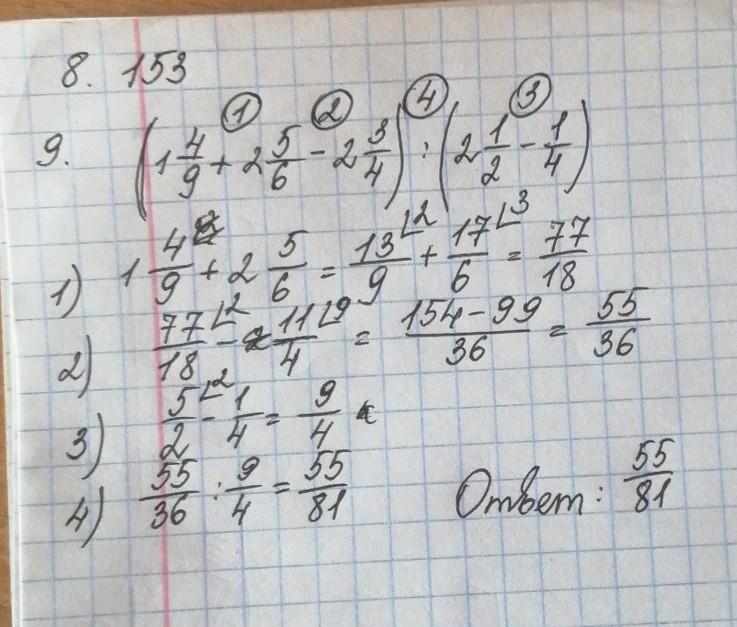 8. 153
① ② ④ ③
9. (1 4/9 + 2 5/6 - 2 3/4) : (2 1/2 - 1/4)
1) 1 4/9 + 2 5/6 = 13/9 ∟2 + 17/6 ∟3 = 77/18
2) 77/18 ∟2 - 11/4 ∟9 = 154-99/36 = 55/36
3) 5/2 ∟2 - 1/4 = 9/4
4) 55/36 : 9/4 = 55/81 Ответ: 55/81